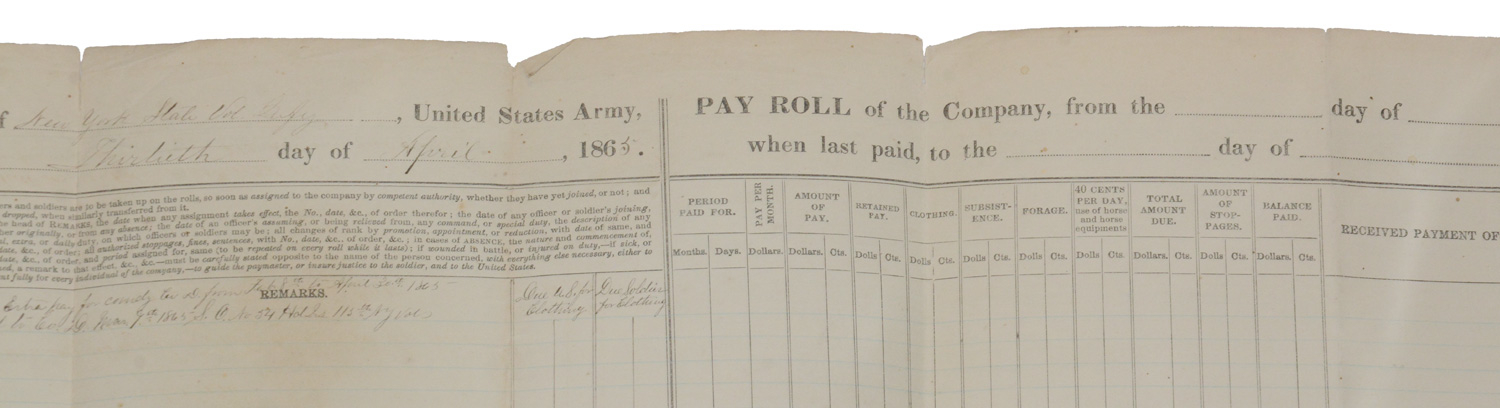 f New York State Vol Infy, United States Army,
Thirtieth day of April, 1865.
ers and soldiers are to be taken up on the rolls, so soon as assigned to the company by competent authority, whether they have yet joined, or not; and
dropped, when similarly transferred from it.
he head of REMARKS, the date when any assignment takes effect, the No., date, &c., of order therefor; the date of any officer or soldier's joining,
her originally, or from any absence; the date of an officer's assuming, or being relieved from, any command, or special duty, the description of any
al, extra, or daily duty, on which officers or soldiers may be; all changes of rank by promotion, appointment, or reduction, with date of same, and
date, &c., of order; all authorized stoppages, fines, sentences, with No., date, &c., of order, &c.; in cases of ABSENCE, the nature and commencement of,
date, &c., of order, and period assigned for, same (to be repeated on every roll while it lasts); if wounded in battle, or injured on duty,—if sick, or
ned, a remark to that effect, &c., &c.—must be carefully stated opposite to the name of the person concerned, with everything else necessary, either to
nt fully for every individual of the company,—to guide the paymaster, or insure justice to the soldier, and to the United States.
REMARKS.
Extra pay for comdg Co D from Feb 8th to April 30th 1865
Jan 9th 1865 S.O. No 54 Hd Qrs 115th NY Vols
Due U.S. for Clothing
Due Soldier for Clothing
PAY ROLL of the Company, from the day of
when last paid, to the day of
PERIOD PAID FOR.
PAY PER MONTH.
AMOUNT OF PAY.
RETAINED PAY.
CLOTHING.
SUBSISTENCE.
FORAGE.
40 CENTS PER DAY, use of horse and horse equipments
TOTAL AMOUNT DUE.
AMOUNT OF STOPPAGES.
BALANCE PAID.
RECEIVED PAYMENT OF
Months. Days. Dollars. Dollars. Cts. Dolls Cts. Dolls Cts. Dolls Cts. Dolls Cts. Dolls Cts. Dollars. Cts. Dolls Cts. Dollars. Cts.